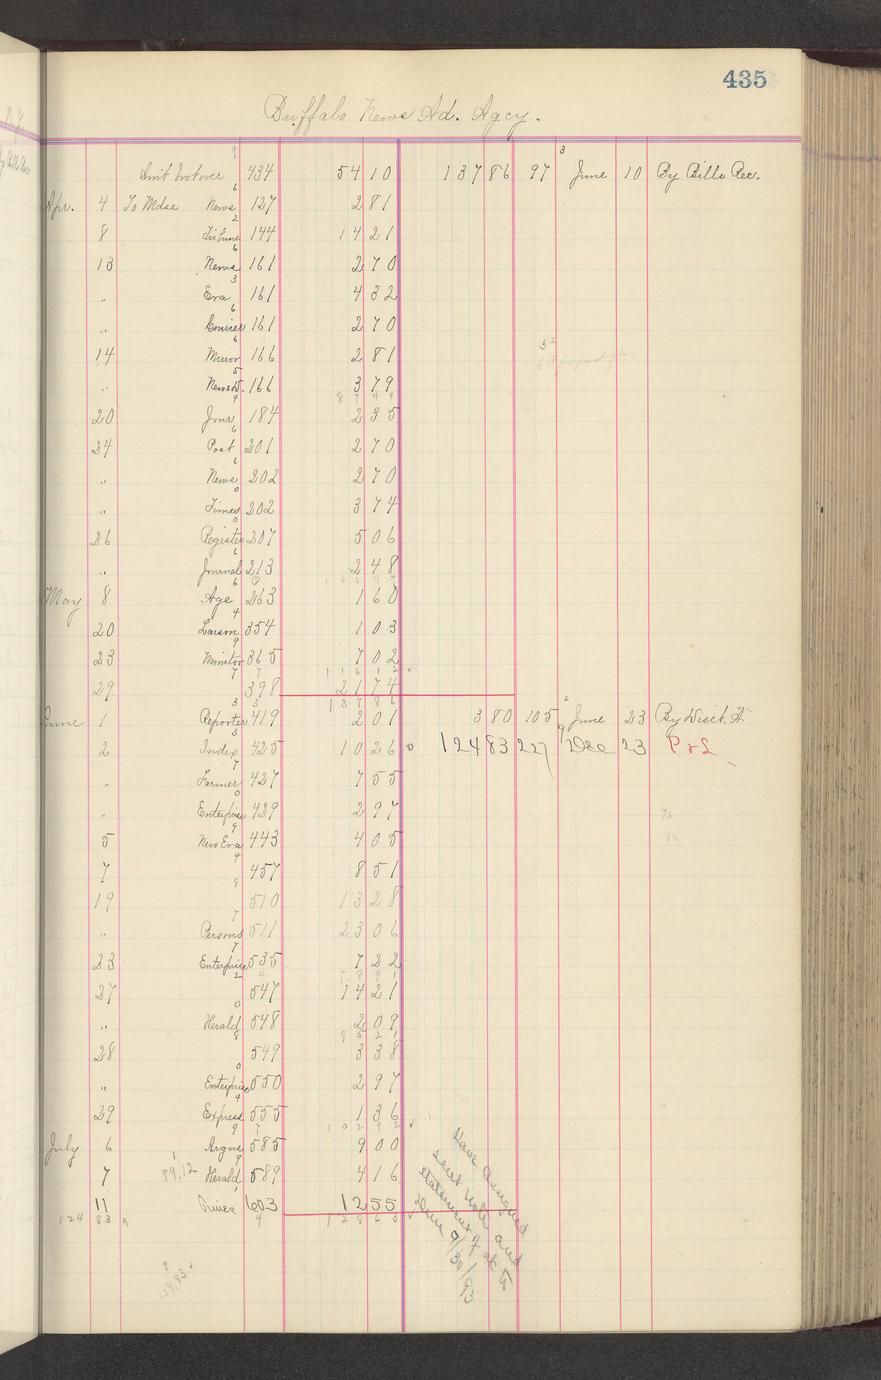 435
Buffalo News Ad. Agcy.
Amt brot over 434 54 10 137 86 97 June 10 By Bills Rec.
Apr. 4 To Mdse News 127 2 81
8 Tribune 144 14 21
13 News 161 2 70
" Era 161 4 32
" Courier 161 2 70
14 Mirror 166 2 81
" News W. 166 3 79
87 44
20 Jour 184 2 35
24 Post 201 2 70
" News 202 2 70
" Times 202 3 74
26 Register 207 5 06
" Journal 213 2 48
106 47
May 8 Age 263 1 60
20 Larson 354 1 03
23 Monitor 365 7 02
116 12
29 398 21 74
137 86
June 1 Reporter 419 2 01 3 80 105 June 23 By Disct. A
2 Index 425 10 26 124 83 227 Dec 23 P & L
" Farmer 427 7 55
" Enterprise 429 2 97
5 New Era 443 4 05
7 457 8 51
19 510 13 28
" Persons 511 23 06
23 Enterprise 535 7 22
78 91
27 547 14 21
" Herald 548 2 09
95 21
28 549 3 38
" Enterprise 550 2 97
29 Express 555 1 36
102 92
July 6 Argus 585 9 00
7 89.12 Herald 589 4 16
11 603 12 55
124 83 128 63
129.83
Have assigned
sent note and
statement of a/c to
9/30/93